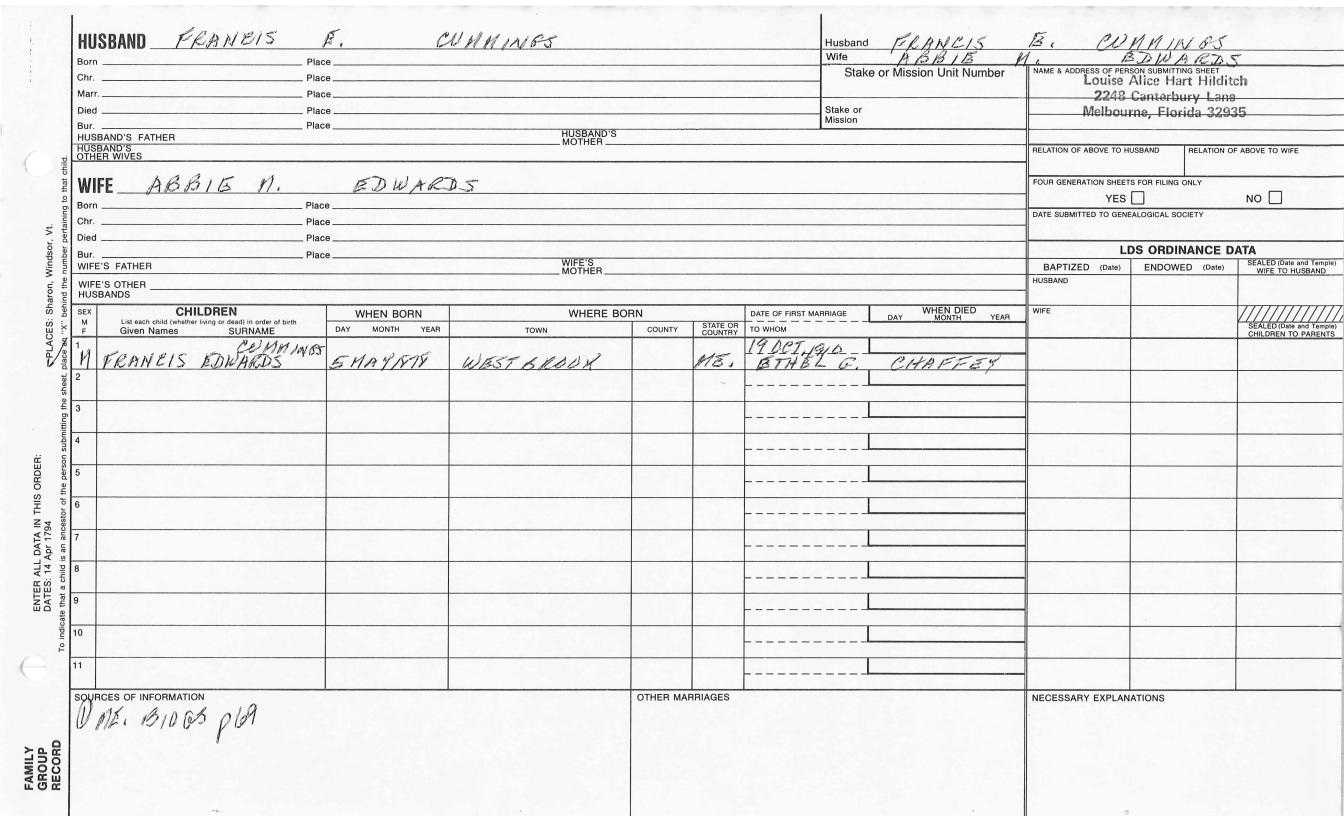 HUSBAND FRANCIS E. CUMMINGS
Born Place
Chr. Place
Marr. Place
Died Place
Bur. Place
HUSBAND'S FATHER HUSBAND'S MOTHER
HUSBAND'S OTHER WIVES
Husband FRANCIS E. CUMMINGS
Wife ABBIE M. EDWARDS
Stake or Mission Unit Number
Stake or Mission
NAME & ADDRESS OF PERSON SUBMITTING SHEET
Louise Alice Hart Hilditch
2248 Canterbury Lane
Melbourne, Florida 32935
RELATION OF ABOVE TO HUSBAND RELATION OF ABOVE TO WIFE
FOUR GENERATION SHEETS FOR FILING ONLY
YES NO
DATE SUBMITTED TO GENEALOGICAL SOCIETY
WIFE ABBIE M. EDWARDS
Born Place
Chr. Place
Died Place
Bur. Place
WIFE'S FATHER WIFE'S MOTHER
WIFE'S OTHER HUSBANDS
LDS ORDINANCE DATA
BAPTIZED (Date) ENDOWED (Date) SEALED (Date and Temple) WIFE TO HUSBAND
HUSBAND
WIFE
SEALED (Date and Temple) CHILDREN TO PARENTS
SEX M F
CHILDREN
List each child (whether living or dead) in order of birth
Given Names SURNAME
WHEN BORN
DAY MONTH YEAR
WHERE BORN
TOWN COUNTY STATE OR COUNTRY
DATE OF FIRST MARRIAGE
TO WHOM
WHEN DIED
DAY MONTH YEAR
1 CUMMINGS 19 OCT.
M FRANCIS EDWARDS 5 MAY WESTBROOK ME. ETHEL G. CHAFFEY
2
3
4
5
6
7
8
9
10
11
SOURCES OF INFORMATION
① ME. BIOGS p69
OTHER MARRIAGES
NECESSARY EXPLANATIONS
FAMILY GROUP RECORD
ENTER ALL DATA IN THIS ORDER:
DATES: 14 Apr 1794
PLACES: Sharon, Windsor, Vt.
To indicate that a child is an ancestor of the person submitting the sheet, place an "X" behind the number pertaining to that child.